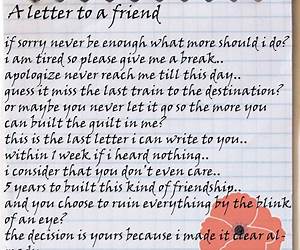 A letter to a friend
if sorry never be enough what more should i do?
i am tired so please give me a break..
apologize never reach me till this day..
guess it miss the last train to the destination?
or maybe you never let it go so the more you
can built the guilt in me?
this is the last letter i can write to you..
within 1 week if i heard nothing..
i consider that you don't even care..
5 years to built this kind of friendship..
and you choose to ruin everything by the blink
of an eye?
the decision is yours because i made it clear al-